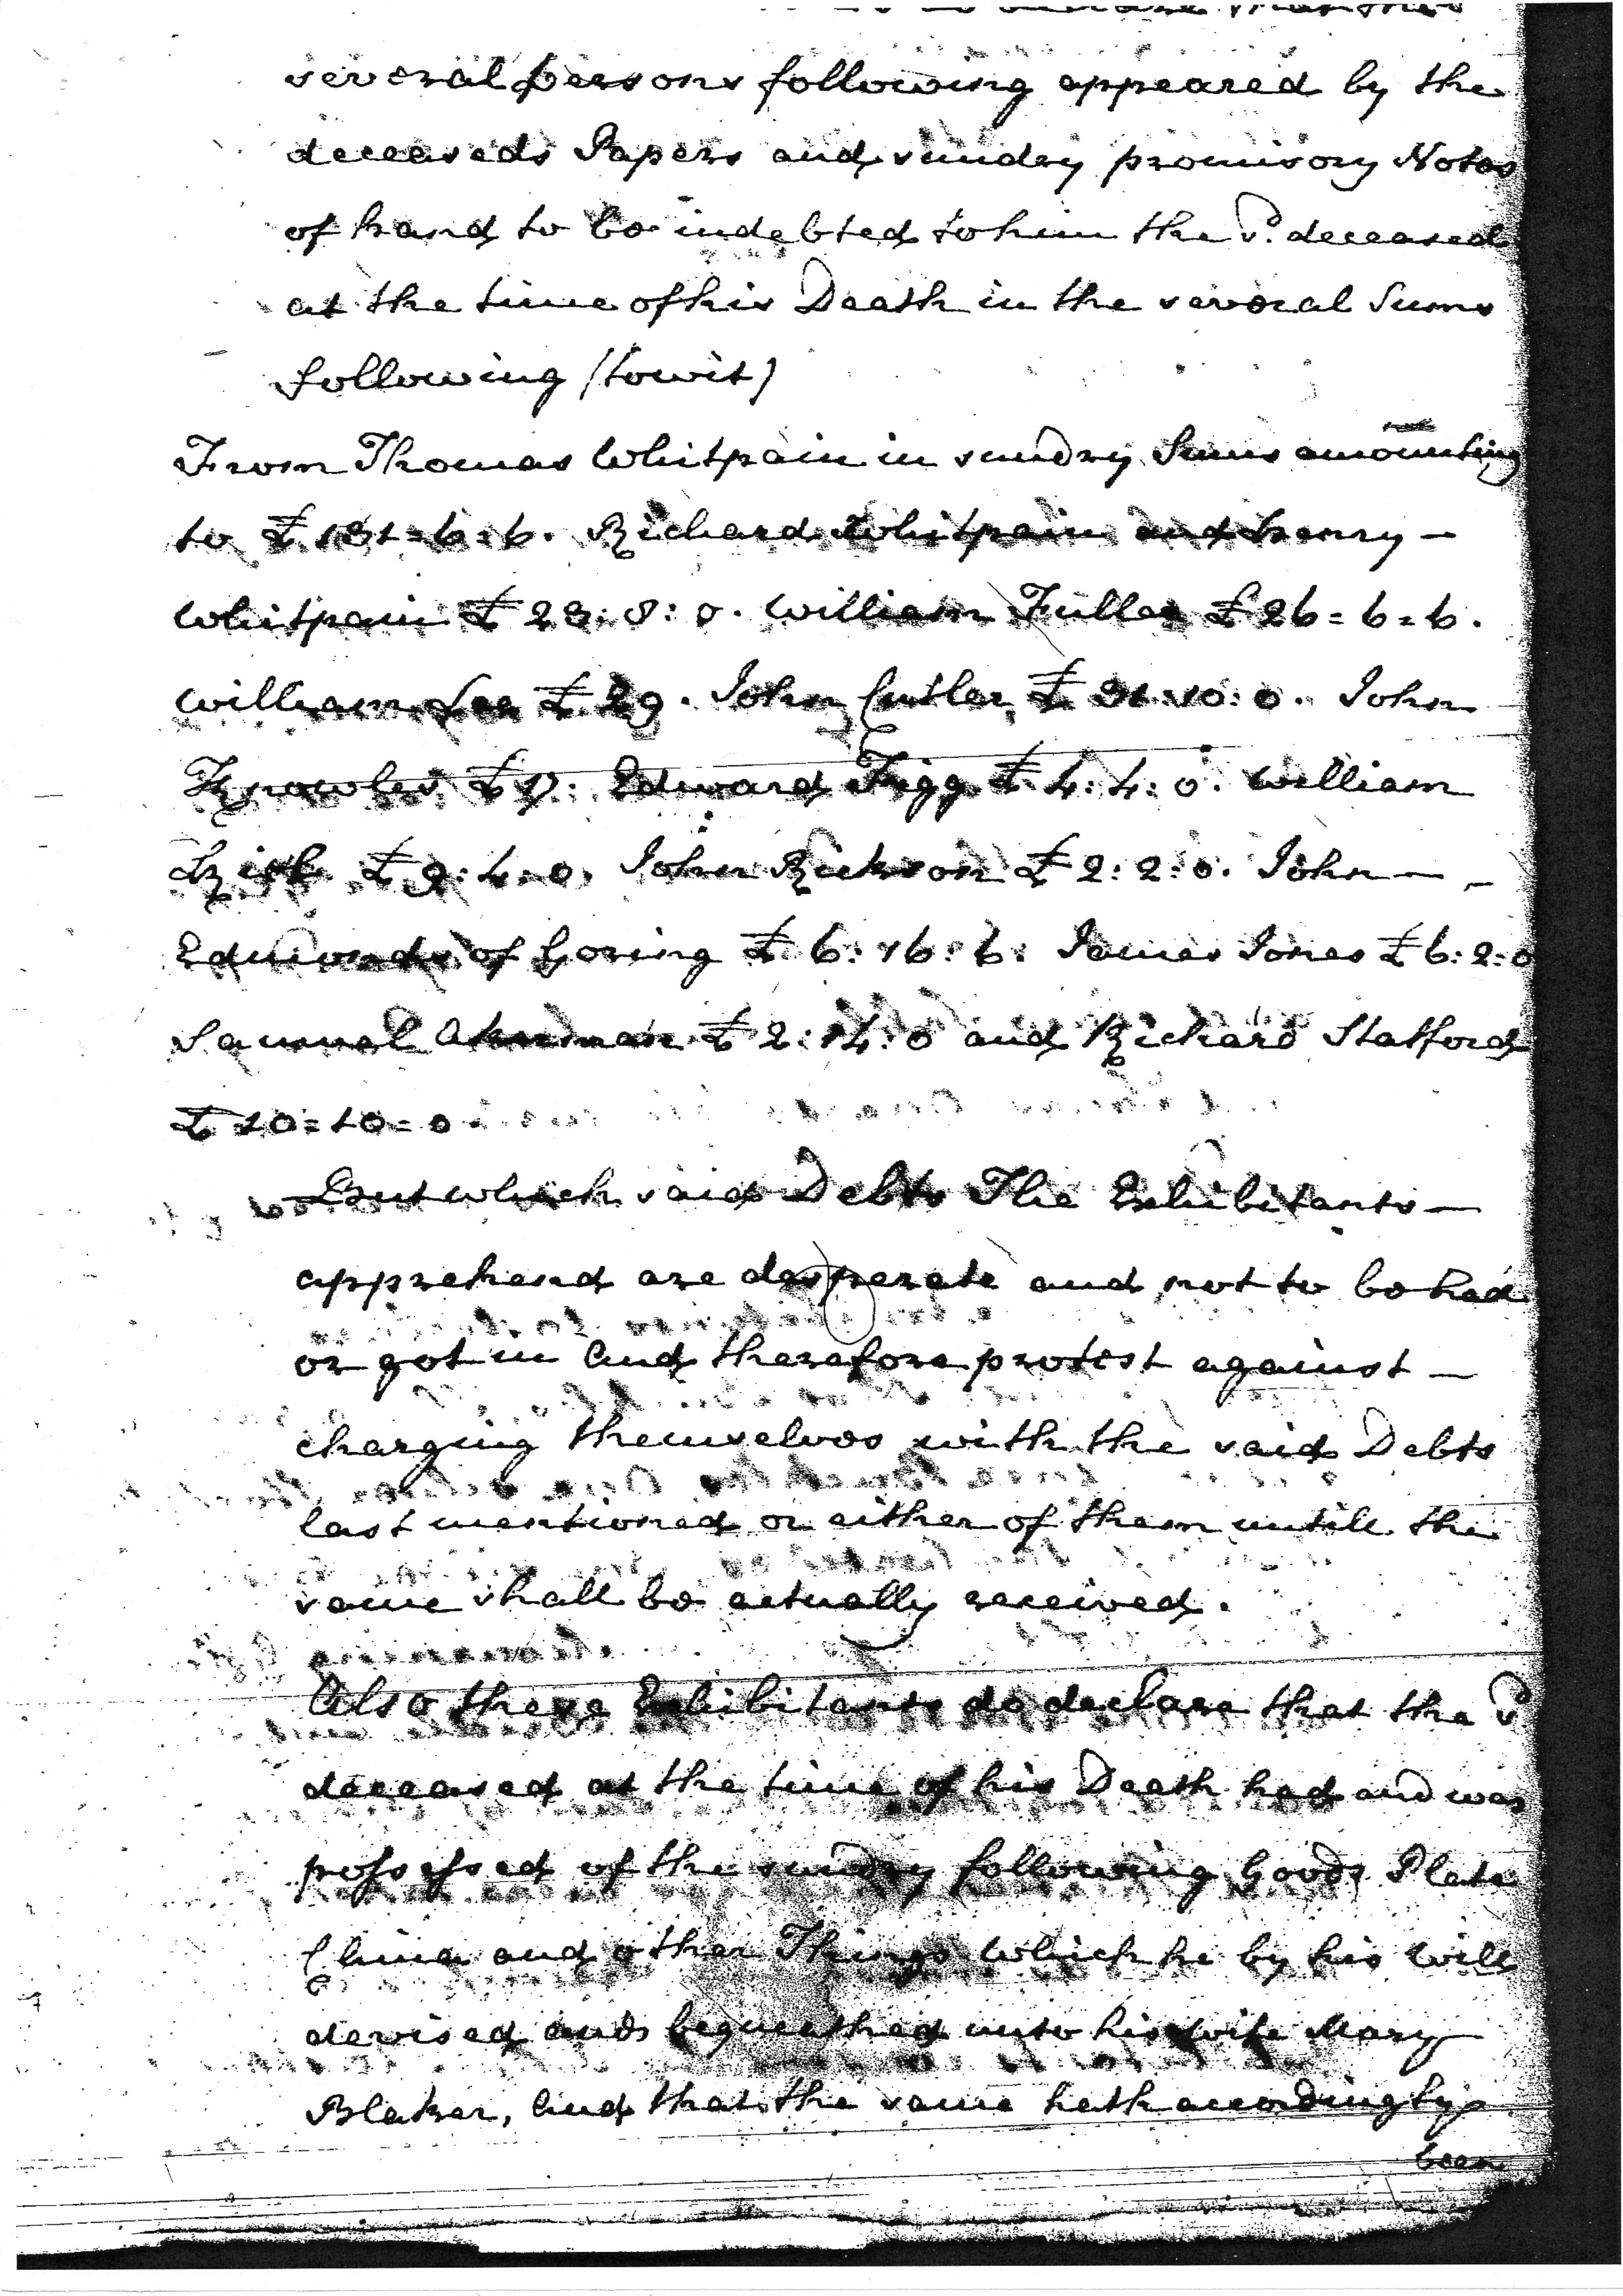 several persons following appeared by the
deceaseds Papers and sundry promisory Notes
of hand to be indebted to him the sd. deceased
at the time of his Death in the several Sums
following (to wit)
From Thomas Whitpain in sundry Sums amounting
to £ 6=6. Richard Whitpain and Henry -
Whitpain £ William Fuller £ 26=6=6.
William Lee £ 29. John Cutler £ 31:10:0. John
Knowles Edward Figg £ 4:4:0. William
£ 9:4:0. John Rickson £ 2:2:0. John -
Edmonds of Goring £ 6:16:6. James Jones £ 6:2:0
Samual Akurman £ 2:14:0 and Richard Statford
£ 10=10=0.
But which said Debts The Exhibitants -
apprehend are desperate and not to be had
or got in And therefore protest against -
charging themselves with the said Debts
last mentioned or either of them untill the
same shall be actually received.
Also these Exhibitants do declare that the sd
deceased at the time of his Death had and was
possessed of the sundry following Goods Plate
China and other Things which he by his Will
devised and bequeathed unto his wife Mary
Blaker, And that the same hath accordingly
been